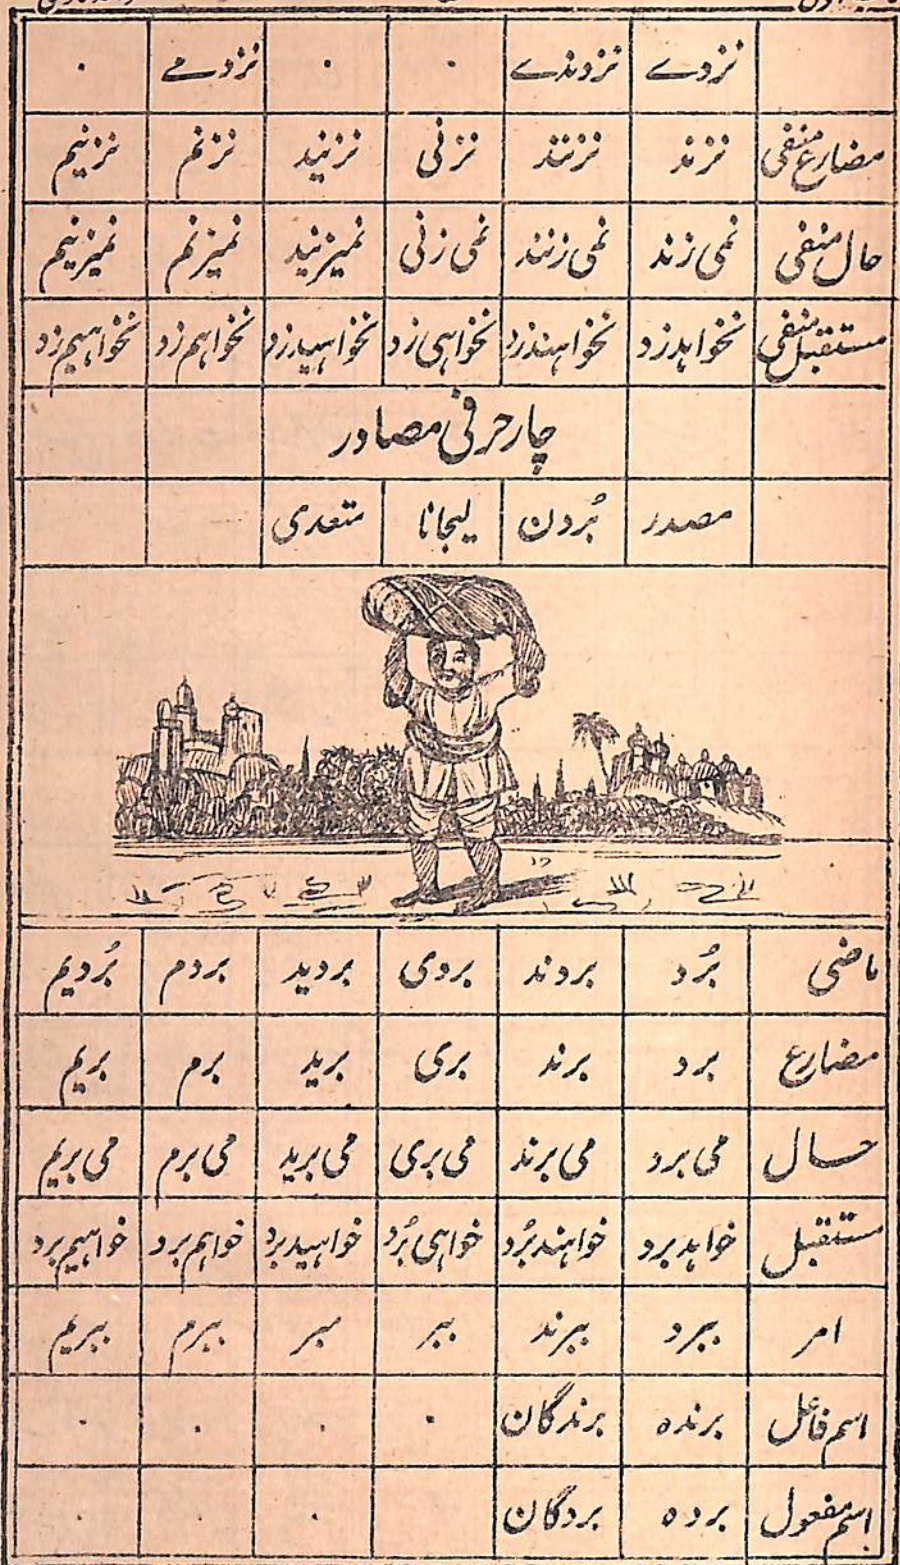 نزدے نزدندے · · نزدمے ·
مضارع منفی نزند نزنند نزنی نزنید نزنم نزنیم
حال منفی نمی زند نمی زنند نمی زنی نمیزنید نمیزنم نمیزنیم
مستقبل منفی نخواہدزد نخواہندزد نخواہی زد نخواہیدزد نخواہم زد نخواہیم زد
چار حرفی مصادر
مصدر بُردن لیجانا متعدی
ماضی بُرد بردند بردی بردید بردم بُردیم
مضارع برد برند بری برید برم بریم
حال می برد می برند می بری می برید می برم می بریم
مستقبل خواہد برد خواہند بُرد خواہی بُرد خواہید برد خواہم برد خواہیم برد
امر ببرد ببرند ببر ببرم ببریم
اسم فاعل برندہ برندگان · · · ·
اسم مفعول بردہ بردگان · · ·